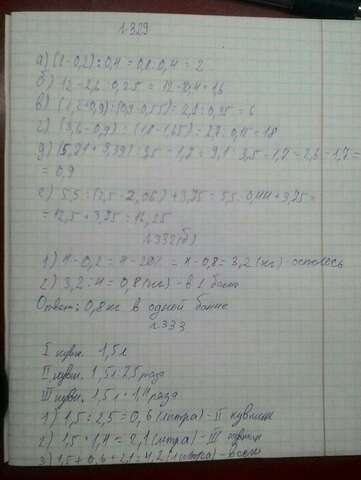 1.329
а) (1-0,2):0,4=0,8:0,4=2
б) 12-2,6:0,25=12-10,4=1,6
в) (1,2+0,9):(0,9-0,55)=2,1:0,35=6
г) (3,6-0,9):(1,8-1,65)=2,7:0,15=18
д) (5,71+3,39):3,5-1,7=9,1:3,5-1,7=2,6-1,7=
=0,9
е) 5,5:(2,5-2,06)+3,75=5,5:0,44+3,75=
=12,5+3,75=16,25
1.332(б)
1) 4-0,2=4-20%=4-0,8=3,2(кг)-осталось
2) 3,2:4=0,8(кг)-в 1 банке
Ответ: 0,8 кг в одной банке
1.333
I кувш. 1,5л
II кувш. 1,5л:2,5 раза
III кувш. 1,5л·1,4 раза
1) 1,5:2,5=0,6(литра)-II кувшин
2) 1,5·1,4=2,1(литра)-III кувшин
3) 1,5+0,6+2,1=4,2(литра)-всего